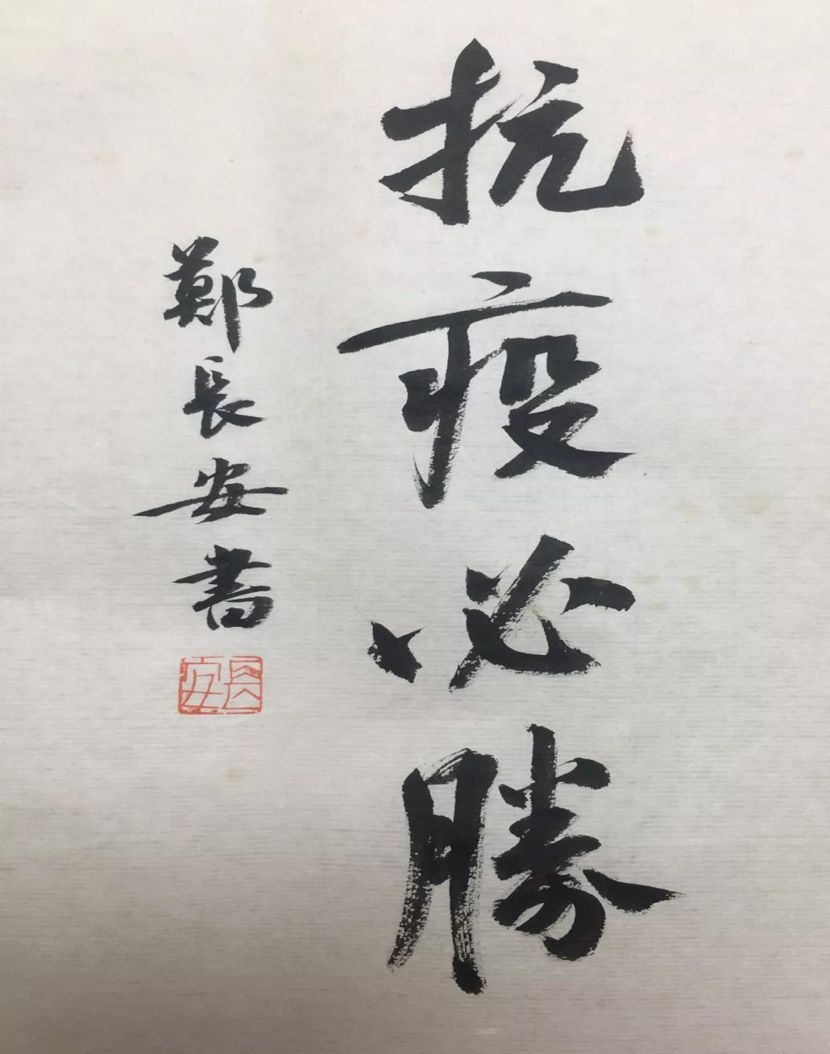 抗疫必勝
鄭長安書
長安